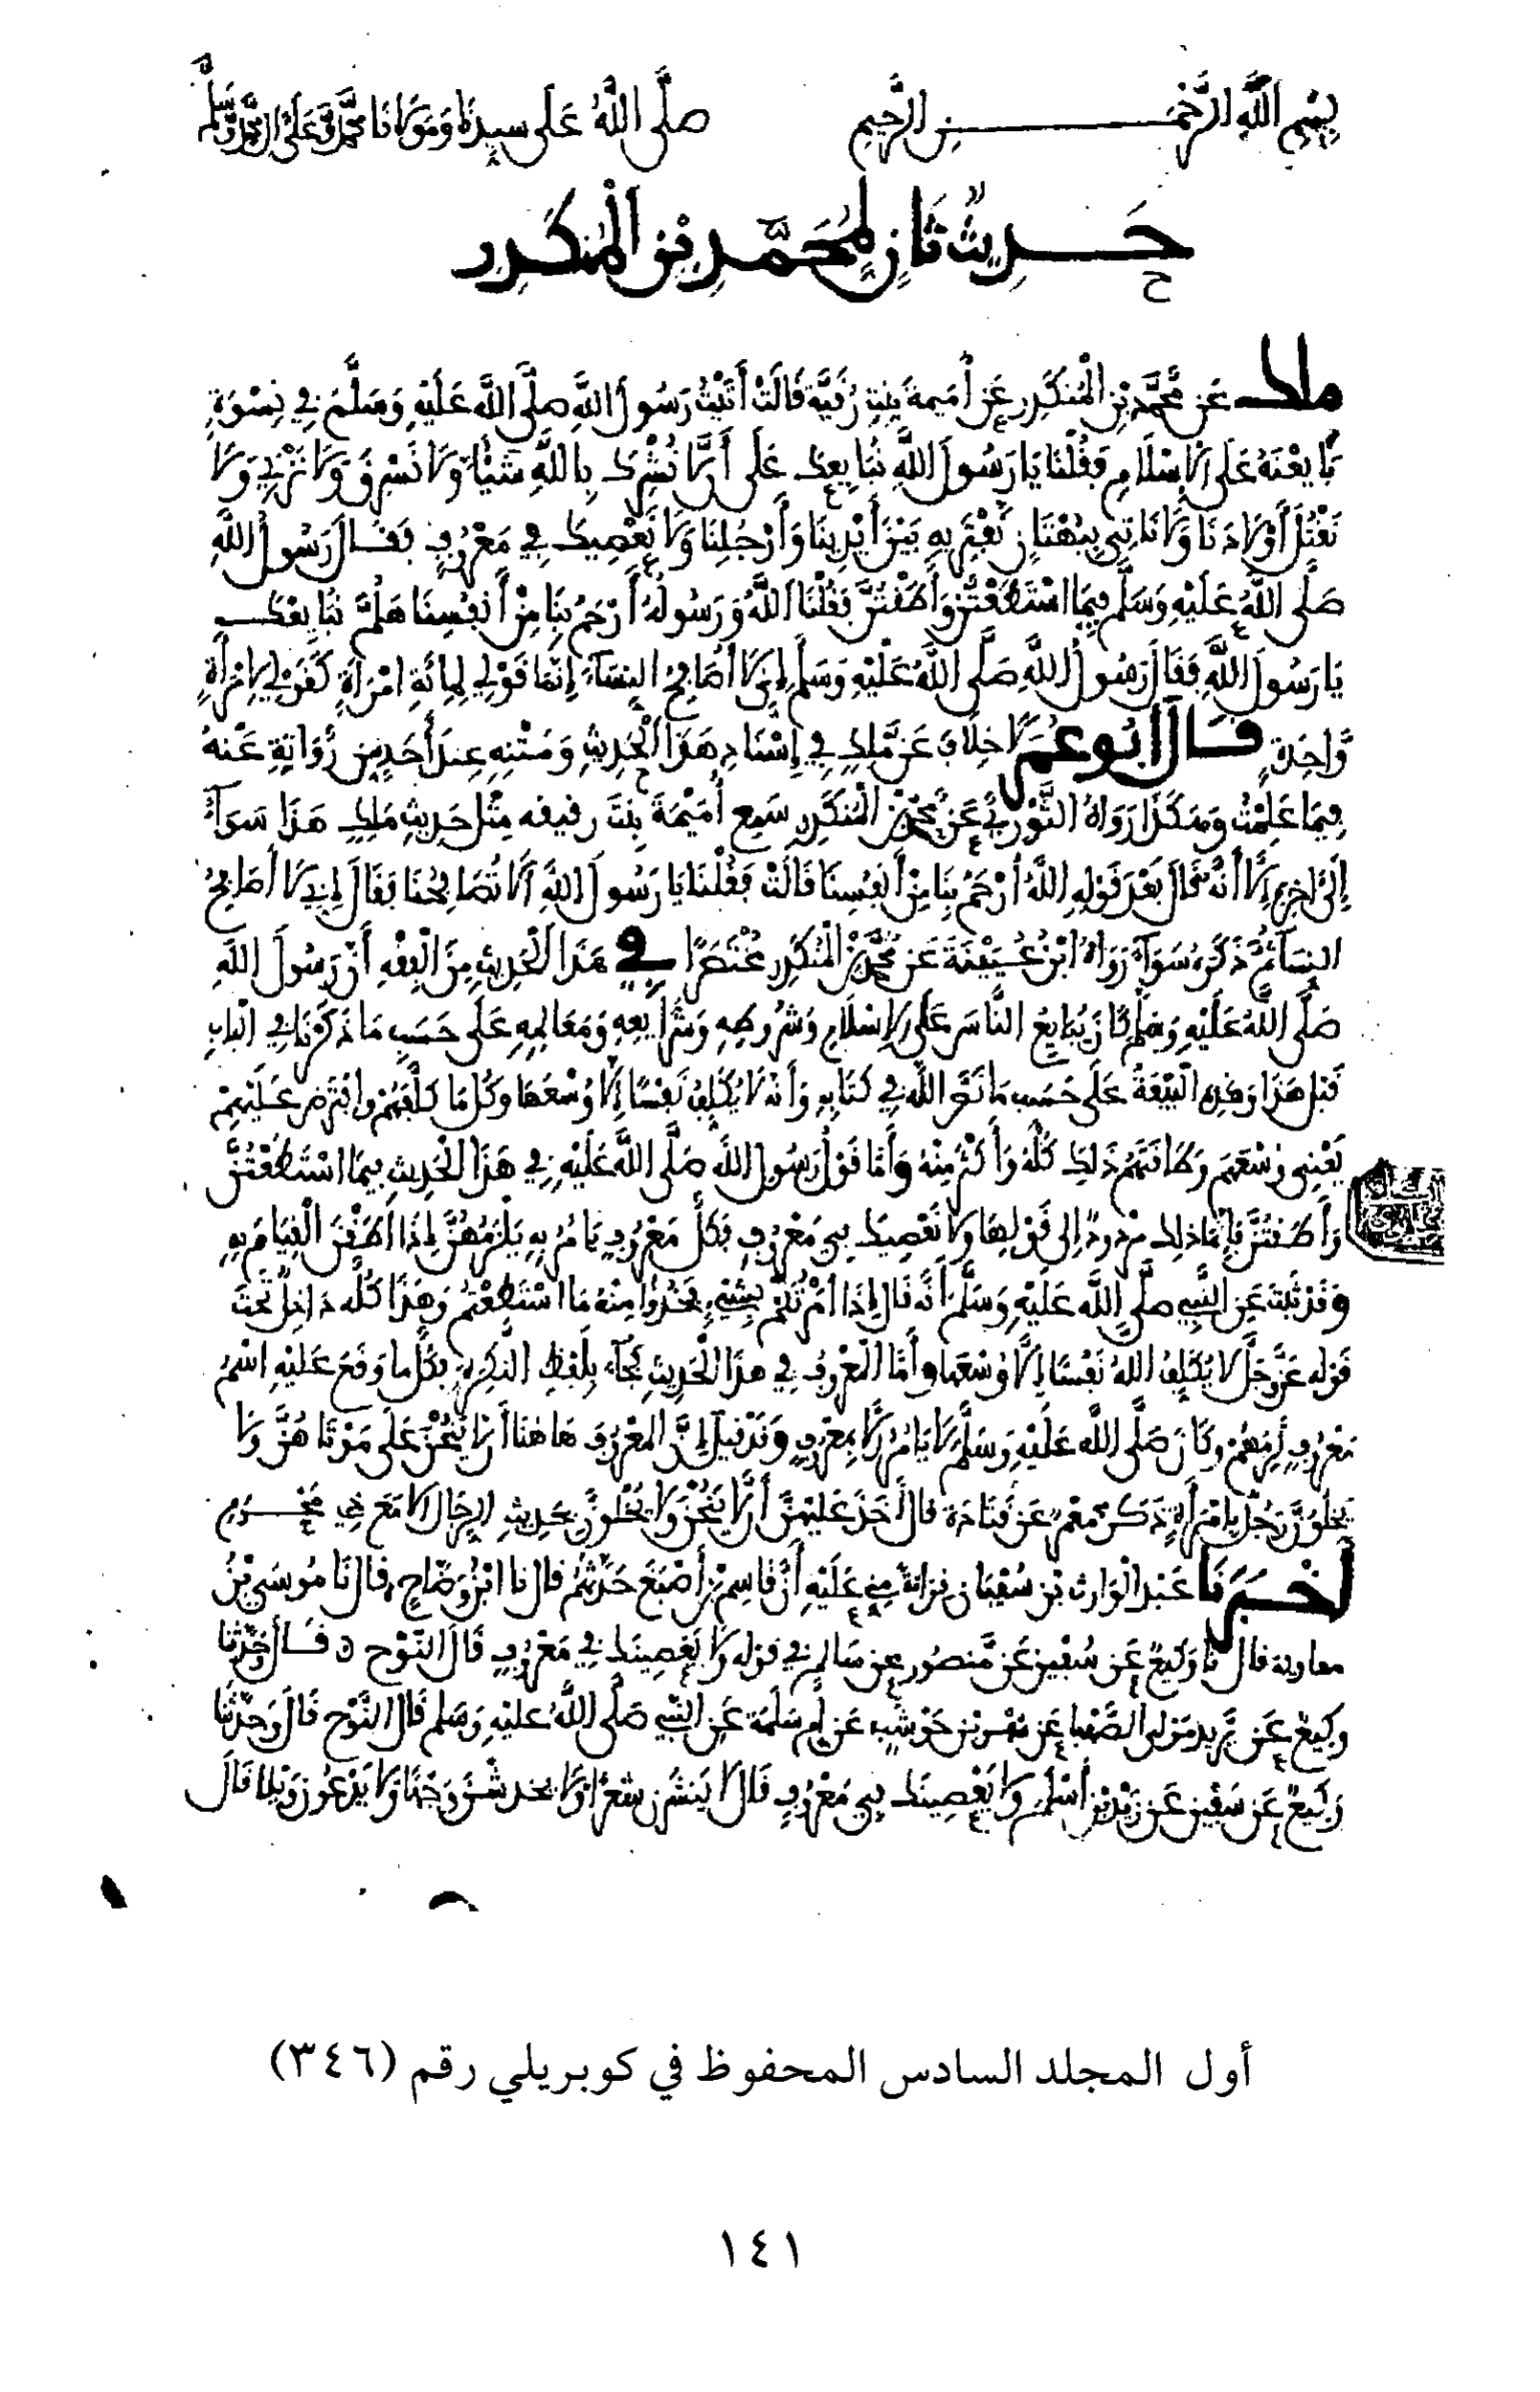 بِسْمِ اللَّهِ الرَّحْمَنِ الرَّحِيمِ صَلَّى اللَّهُ عَلَى سيدنا وَمَوْلَانَا مُحَمَّدٍ وَعَلَى آله وَسَلَّم
حَدِيثٌ ثَانٍ لِمُحَمَّدِ بْنِ الْمُنْكَدِرِ
ملك عَن مُحَمَّدِ بْنِ الْمُنْكَدِرِ عَن أُمَيمة بِنتِ رُقَيَّة قَالَتْ أَتَيْتُ رَسُولَ اللَّهِ صلَّى اللَّه عَلَيْهِ وَسَلَّمَ فِي نِسْوَةٍ
بَايعْنَهُ عَلَى الإِسْلَامِ فَقُلْنَا يَا رَسُولَ اللَّهِ نُبَايِعك عَلَى أَلَّا نُشْرِك بِاللَّهِ شَيْئًا وَلَا نَسْرِقَ وَلَا نَزْنِيَ وَلَا
نَقْتُلَ أَوْلَادَنَا وَلَا نَاتِيَ بِبُهْتَانٍ نَفْتَرِيهِ بَيْنَ أَيْدِينَا وَأَرْجُلِنَا وَلَا نَعْصِيك فِي مَعْرُوفٍ فَقَالَ رَسُولُ اللَّهِ
صَلَّى اللَّهُ عَلَيْهِ وَسَلَّم فِيمَا اسْتَطَعْتُنَّ وَأَطَقْتُنَّ فَقُلْنَا اللَّهُ وَرَسُولُهُ أَرْحَمُ بِنَا مِنْ أَنفُسِنَا هَلُمَّ نُبَايِعْك
يَا رَسُولَ اللَّهِ فَقَالَ رَسُولُ اللَّهِ صَلَّى اللَّهُ عَلَيْهِ وَسَلَّم إِنِّي لَا أُصَافِحُ النِّسَآءَ إِنَّمَا قَوْلِي لِمِائَةِ امْرَأَةٍ كَقَوْلِي لِامْرَأَةٍ
وَّاحِدَةٍ قَالَ أَبُو عُمَر لَا خِلَافَ عَن مَّلِكٍ فِي إِسْنَادِ هَذَا الْحَدِيثِ وَمَتْنِهِ عِندَ أَحَدٍ مِن رُّوَاتِهِ عَنهُ
فِيمَا عَلِمْتُ وَهَكَذَا رَوَاهُ الثَّوْرِيُّ عَن مُحَمَّدِ بْنِ الْمُنْكَدِرِ سَمِع أُمَيْمَةَ بِنْتَ رقيقه مِثْلَ حَدِيثِ مَلِكٍ هَذَا سَوَآءً
إِلَى آخِرِهِ إِلَّا أَنَّهُ قَالَ بَعْدَ قَوْلِهِ اللَّهُ أَرْحَمُ بِنَا مِنْ أَنفُسِنَا قَالَتْ فَقُلْنَا يَا رَسُولَ اللَّهِ أَلَا تُصَافِحُنَا فَقَالَ إِنِّي لَا أُصَافِحُ
النِّسَآءَ ثُمَّ ذَكَرَهُ سَوَآءً رَوَاهُ ابْنُ عُيَيْنَةَ عَن مُّحَمَّدِ بْنِ الْمُنكَدِرِ مُخْتَصَرًا فِي هَذَا الْحَدِيثِ مِنَ الْفِقْهِ أَنَّ رَسُولَ اللَّهِ
صَلَّى اللَّهُ عَلَيْهِ وَسَلَّم كَانَ يُبَايِعُ النَّاسَ عَلَى الإِسْلَامِ وَشُرُوطِهِ وَشَرَايِعِهِ وَمَعَالِمِهِ عَلَى حَسَبِ مَا ذَكَرْنَا فِي الْبَابِ
قَبْلَ هَذَا وَهَذِهِ الْبَيْعَةُ عَلَى حَسَبِ مَا نَصَّ اللَّه فِي كِتَابِهِ وَأَنَّهُ لَا يُكَلِّفُ نَفْسًا إِلَّا وُسْعَهَا وَكُلُّ مَا كَلَّفَهُمْ وافْتَرَضَ عَلَيْهِمْ
يَعْنِي وُسْعَهُم وَطَاقَتَهُمْ ذَلِكَ كُلُّهُ وَأَكْثَرُ مِنْهُ وَأَمَّا قَوْلُ رَسُولِ اللَّهِ صَلَّى اللَّهُ عَلَيْهِ فِي هَذَا الْحَدِيثِ فِيمَا اسْتَطَعْتُنَّ
وَأَطَقْتُنَّ فَإِنَّمَا ذلك مَرْدودٌ إِلى قَوْلِهَا وَلَا نَعْصِيك فِي مَعْرُوفٍ فَكُلُّ مَعْرُوفٍ يَامُرُ بِهِ يَلْزَمُهُنَّ إِذَا أَطَقْنَ الْقِيَامَ بِهِ
وَقَدْ ثَبَتَ عَنِ النَّبِيِّ صلَّى اللَّه عَلَيْهِ وَسَلَّمَ أَنَّهُ قَالَ إِذَا أَمَرْتُكُمْ بِشَيْءٍ فَخُذُوا مِنْهُ مَا اسْتَطَعْتُمْ وَهَذَا كُلُّه دَاخِلٌ تَحْتَ
قَوْلِهِ عَزَّ وَجَلَّ لَا يُكَلِّفُ اللَّهُ نَفْسًا إِلَّا وُسْعَهَا وأَمَّا الْمَعْرُوفُ فِي هذَا الْحَدِيثِ فَجَآءَ بِلَفْظِ النَّكِرَةِ فكُلُّ ما وَقَعَ عَلَيْهِ اسْمُ
مَعْرُوفٍ لَزِمَهُنَّ وَكَانَ صَلَّى اللَّه عَلَيْهِ وَسَلَّم لَا يَامُرُ إِلَّا بِمَعْرُوفٍ وَقَدْ قِيلَ إِنَّ الْمَعْرُوفَ هَاهُنَا أَلَّا يَنُحْنَ عَلَى مَوْتَاهُنَّ وَلَا
يَخْلُوَنَّ رَجُلٌ بِامْرَأَةٍ ذَكَرَ مَعْمَرٌ عَن قَتَادَة قَالَ أَخَذَ عَلَيْهِنَّ أَلَّا يَنُحْنَ وَلَا يَخْلُونَ بِحَدِيثِ الرِّجَالِ إِلَّا مَعَ ذِي مَحْرَمٍ
أَخْبَرَنَا عَبْدُ الْوَارِثِ بْنُ سُفْيَانَ قِرَاءَةً مِنِّي عَلَيْهِ أَنَّ قَاسِمَ بْنَ أَصْبَغَ حَدَّثَهُمْ قَالَ نَا ابْنُ وَضَّاحٍ قَالَ نَا مُوسَى بْنُ
معاوية قال نَا وَكِيعٌ عَن سُفْيَنَ عَن مَّنصُورٍ عَن سَالِمٍ فِي قَوْلِهِ وَلَا يَعْصِينَك فِي مَعْرُوفٍ قَالَ النَّوْح قَالَ وَحَدَّثَنَا
وَكِيعٌ عَن يَزِيدَ مَوْلَى الصَّهْبَا عَن شَهْرِ بْنِ حَوْشَبٍ عَن أُمِّ سَلَمَةَ عَنِ النَّبِيِّ صَلَّى اللَّهُ عَلَيْهِ وَسَلَّم قَالَ النَّوْح قَالَ وَحَدَّثَنَا
وَكِيعٌ عَن سُفْيَنَ عَن زَيْدِ بْنِ أَسْلَمَ وَلَا يَعْصِينَك فِي مَعْرُوفٍ قَالَ لَا يَنْشُرْنَ شَعْرًا وَلَا يَخْدِشْنَ وَجْهًا وَلَا يَدْعُونَ وَيْلًا قَالَ
أول المجلد السادس المحفوظ في كوبريلي رقم (٣٤٦)
١٤١